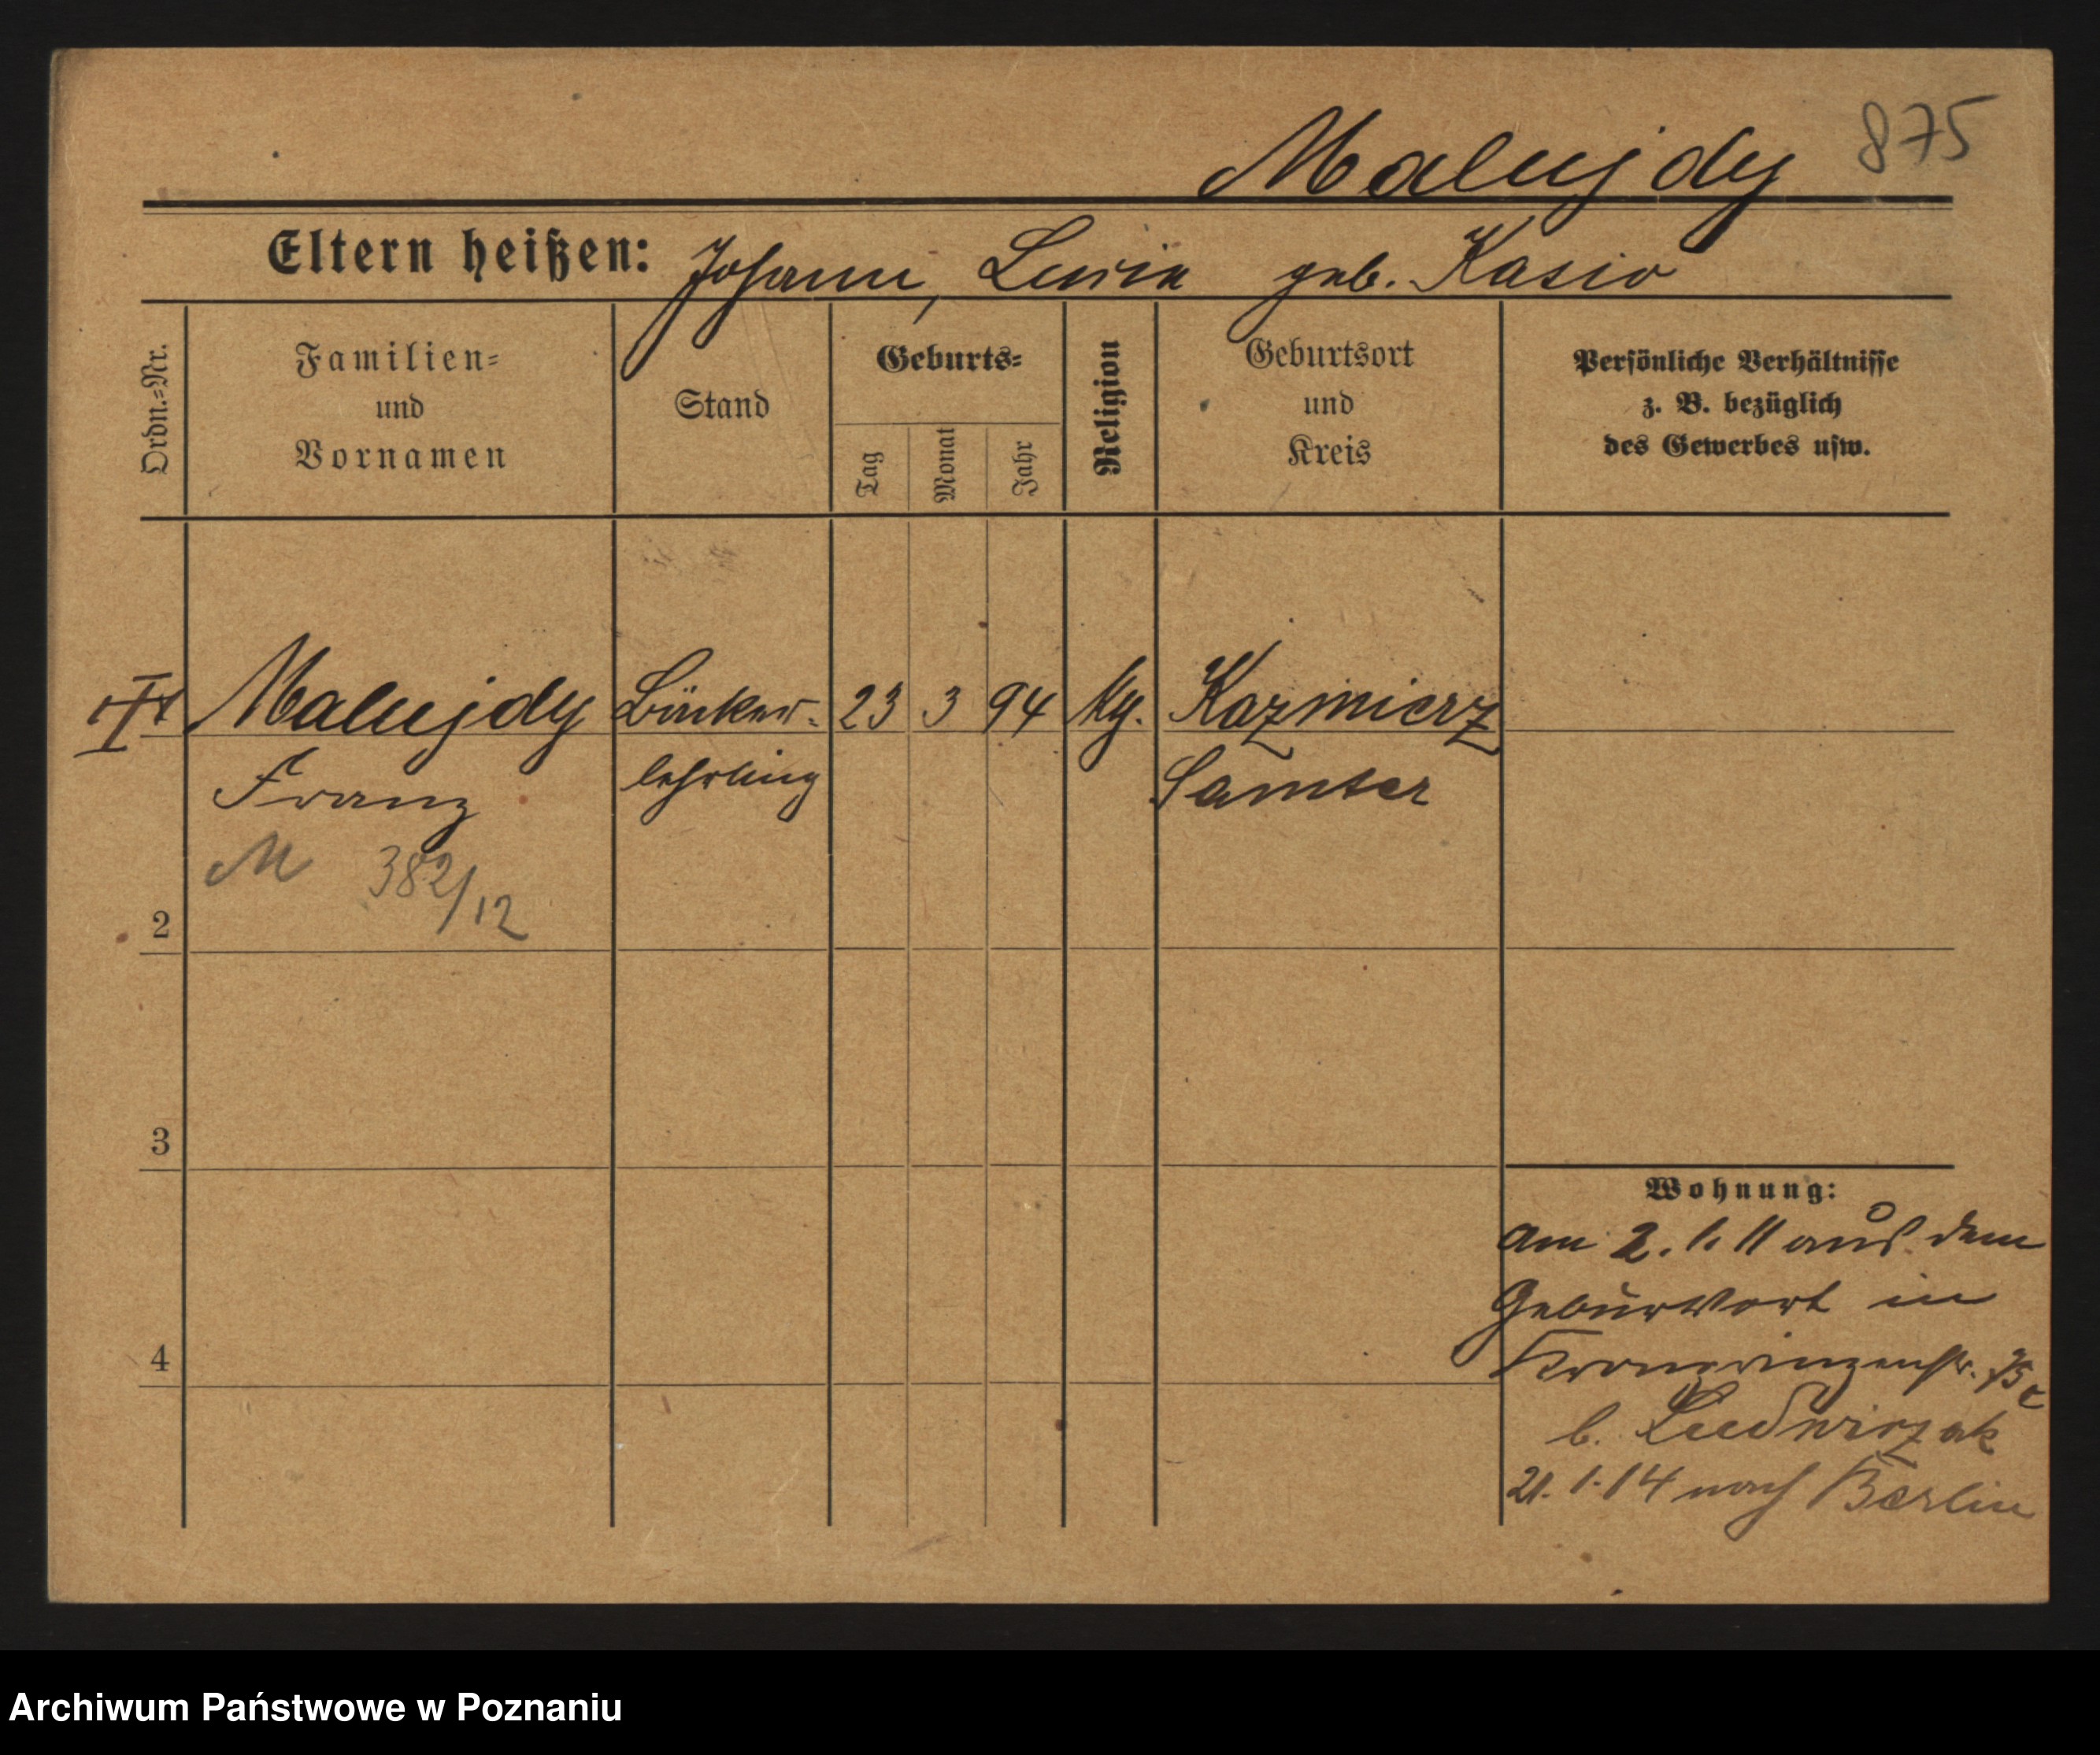 Malujdy 875
Eltern heißen: Johann, geb. Kasio
Ordn.-Nr.
Familien-
und
Vornamen
Stand
Geburts-
Tag
Monat
Jahr
Religion
Geburtsort
und
Kreis
Persönliche Verhältnisse
z. B. bezüglich
des Gewerbes usw.
Malujdy Bäcker- 23 3 94 Kazmierz
Franz lehrling Samter
M 382/12
2
3
4
Wohnung:
am 2. 1. 11 aus dem
Geburtsort in
Kronprinzenstr.
b. Ludwiczak
21. 1. 14 nach Berlin
Archiwum Państwowe w Poznaniu